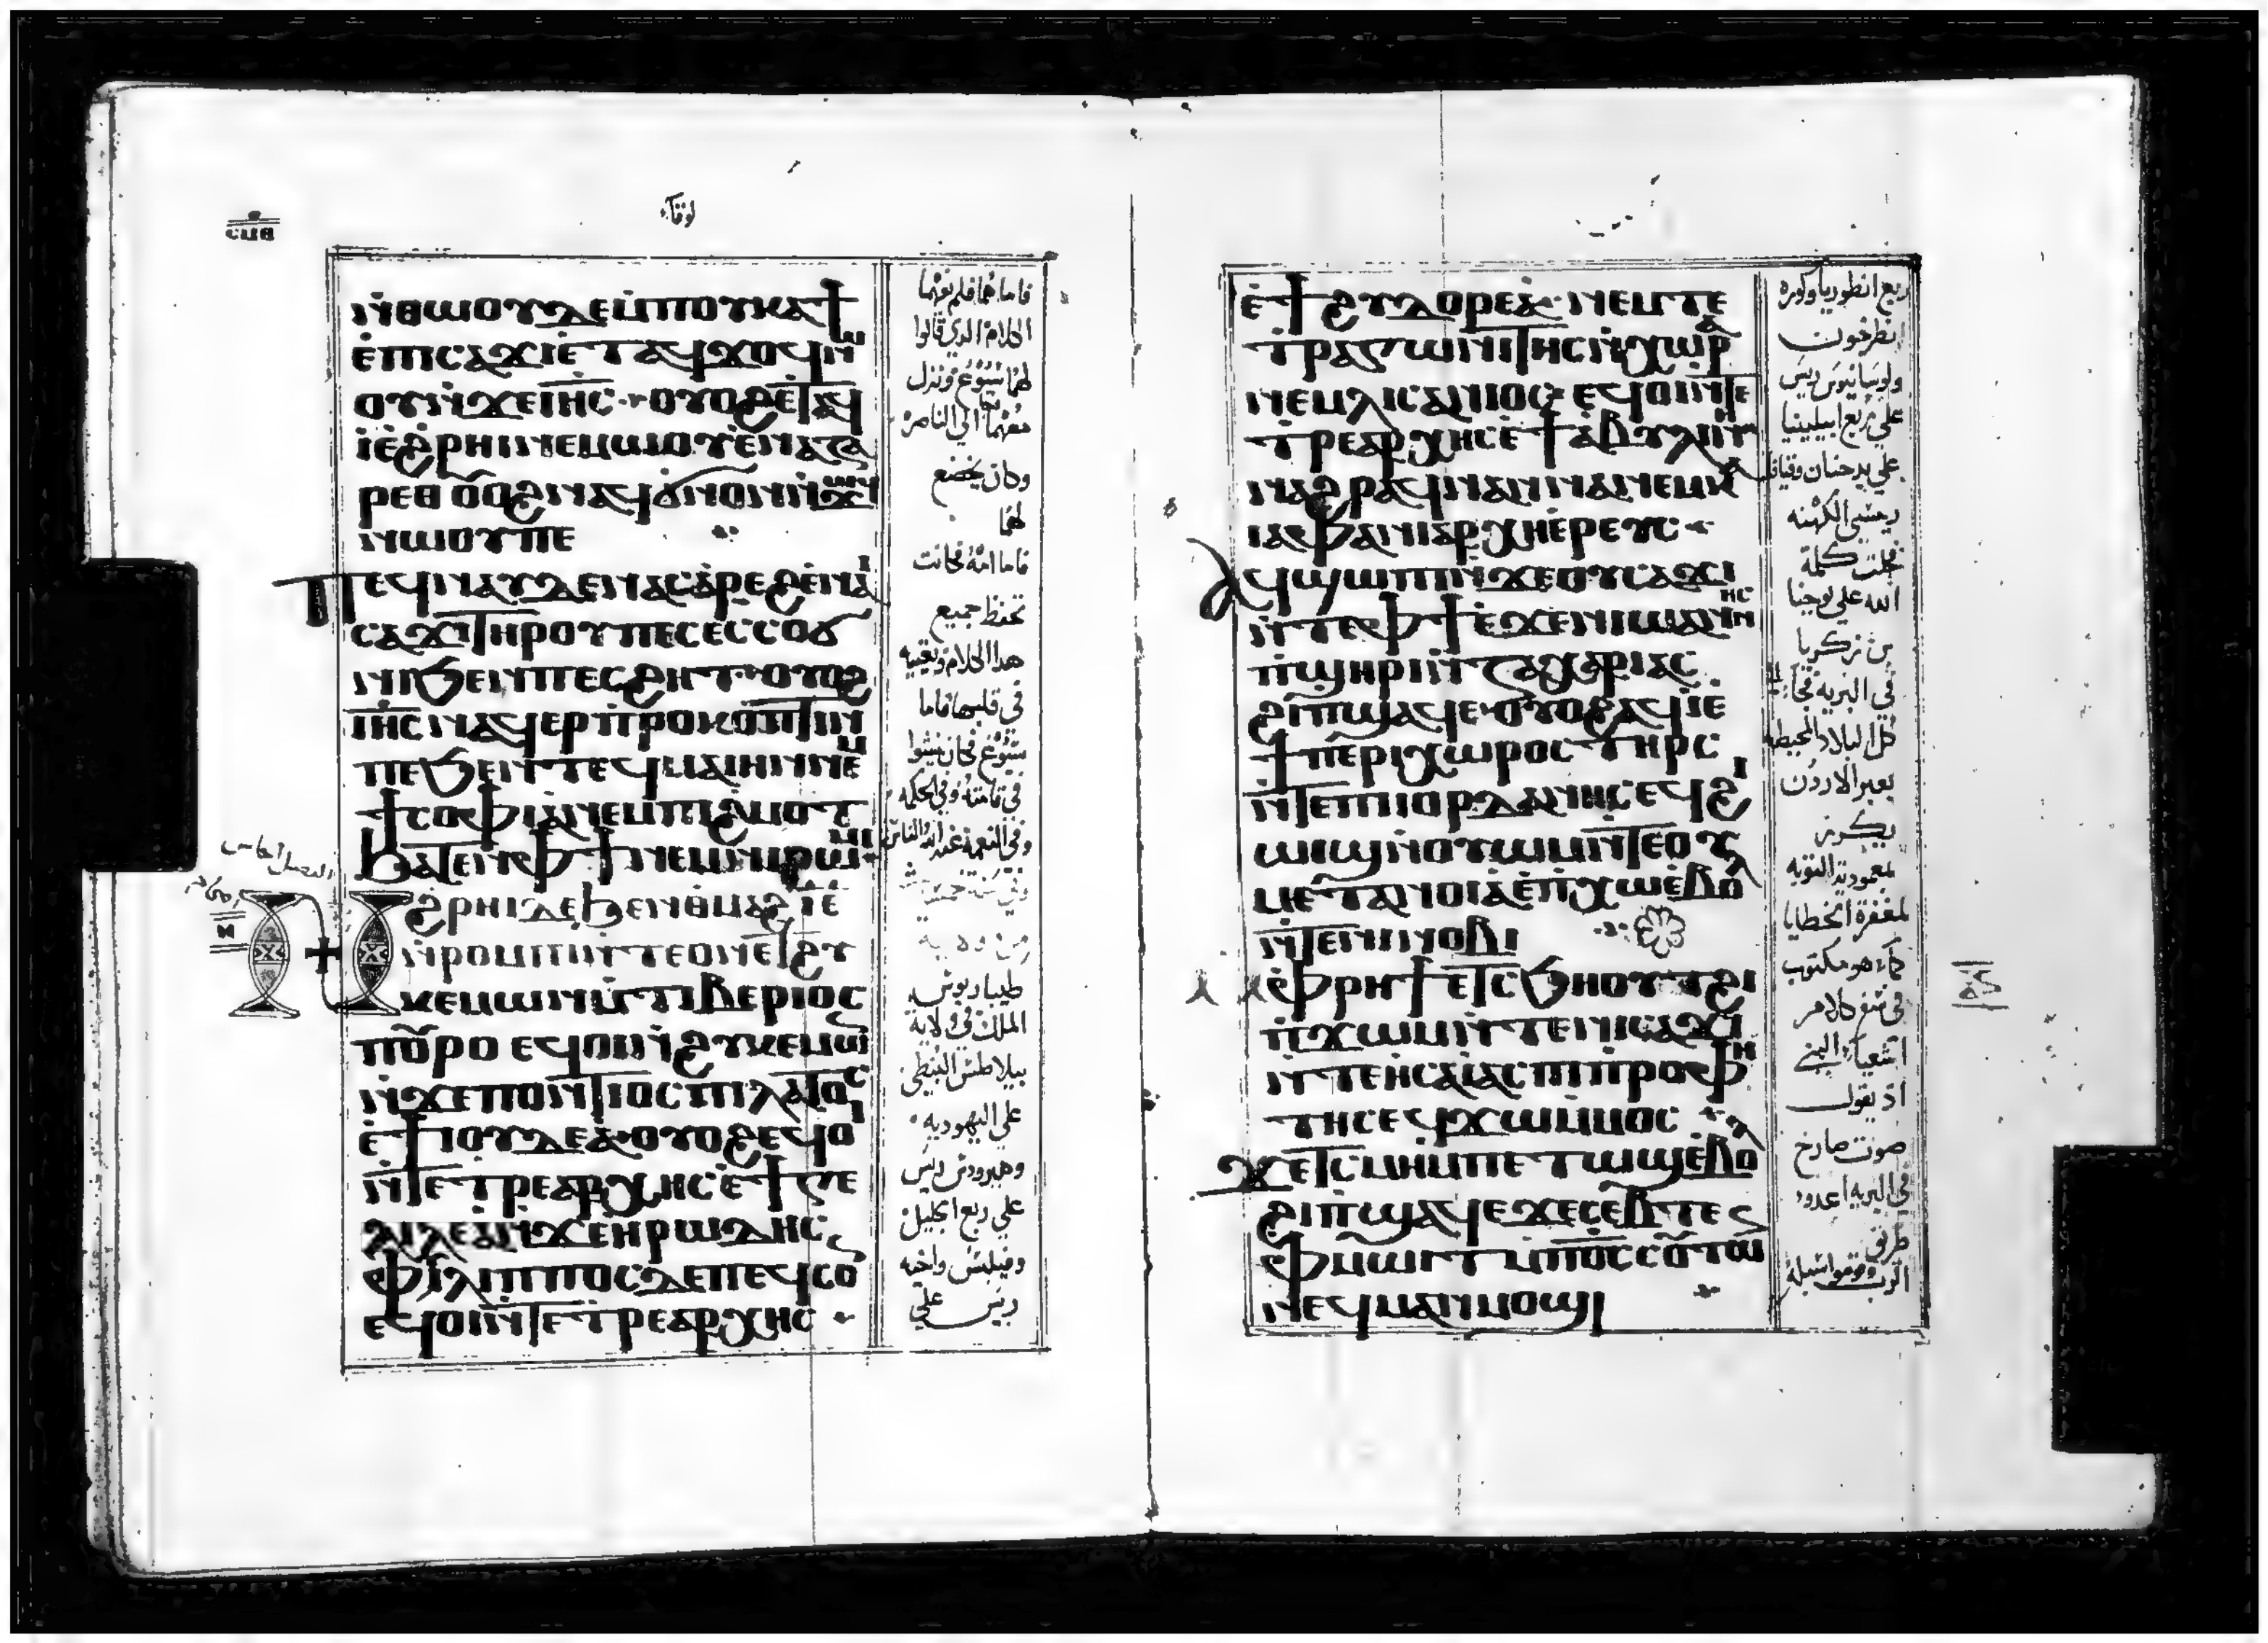 لوقا
ⲛ̀ⲑⲱⲟⲩⲇⲉⲙ̀ⲡⲟⲩⲕⲁϯ
ⲉ̀ⲡⲓⲥⲁϫⲓⲉ̀ⲧⲁϥϫⲟϥⲛⲱ
ⲟⲩⲛ̀ϫⲉⲓⲏ̅ⲥ̅ ⲟⲩⲟϩⲉⲧⲁϥ
ⲓ̀ⲉ̀ϩⲣⲏⲓⲛⲉⲙⲱⲟⲩⲉ̀ⲛⲁⲍⲁ
ⲣⲉⲑ ⲟⲩⲟϩⲛⲁϥϭⲛⲟⲛ̀ϫⲱϥ
ⲛⲱⲟⲩⲡⲉ
ⲧⲉϥⲙⲁⲩⲇⲉⲛⲁⲥⲁ̀ⲣⲉϩⲉ̀ⲛⲁⲓ
ⲥⲁϫⲓⲧⲏⲣⲟⲩⲡⲉⲥⲉⲥⲥⲟⲩ
ⲛⲓϧⲉⲛⲡⲉⲥϩⲏⲧ ⲟⲩⲟϩ
ⲓⲏ̅ⲥ̅ ⲛⲁϥⲉⲣⲡ̀ⲣⲟⲕⲟⲡⲧⲓⲛ
ⲡⲉϧⲉⲛⲧⲉϥⲙⲁⲓⲏⲛⲉⲙ
ϯⲥⲟⲫⲓⲁⲛⲉⲙⲡⲓϩⲙⲟⲧ
ϧⲁⲧⲉⲛⲫϯⲛⲉⲙⲛⲓⲣⲱⲙⲓ
ϩⲣⲏⲓⲇⲉϧⲉⲛⲑⲙⲁϩⲓⲉ̅
ⲛ̀ⲣⲟⲙⲡⲓⲛ̀ⲧⲉⲟⲙⲉⲧϩⲩ
ⲕⲉⲙⲱⲛⲛ̀ⲧⲓⲃⲉⲣⲓⲟⲥ
ⲡⲟⲩⲣⲟ ⲉϥⲟⲓⲛ̀ϩⲩⲕⲉⲙⲱ
ⲛ̀ϫⲉⲡⲟⲛⲧⲓⲟⲥⲡⲓⲗⲁⲧⲟⲥ
ⲉ̀ϯⲓⲟⲩⲇⲉⲁ̀ ⲟⲩⲟϩⲉϥⲟⲓ
ⲛ̀ⲧⲉⲧⲣⲉⲁⲣⲭⲏⲥⲉ̀ϯⲅⲉ
ⲗⲓⲗⲉⲁⲛ̀ϫⲉⲏⲣⲱⲇⲏⲥ
ⲫⲓⲗⲓⲡⲡⲟⲥⲇⲉⲡⲉϥⲥⲟⲛ
ⲉϥⲟⲓⲛ̀ⲧⲉⲧⲣⲉⲁⲣⲭⲏⲥ
فاما هما فلم يفهما
الكلام الدي قالوا
لهما يسوع ونزل
معهما الي الناصره
وكان يخضع
لهما
فاما امه فكانت
تحفظ جميع
هدا الكلام وتعيه
في قلبها فاما
يسوع فكان ينشوا
في قامته وفي الحكمه
وفي النعمة عند الله والناس
طيباريوس
الملك في ولاية
بيلاطس البنطي
علي اليهوديه
وهيرودس ريس
علي ربع الجليل
وفيلبس واخيه
ريس علي
ⲉ̀ϯϩⲩⲇⲟⲣⲉⲁ̀ ⲛⲉⲙⲧⲉ
ⲧⲣⲁⲅⲱⲛⲓⲧⲏⲥⲛ̀ⲭⲱⲣⲁ
ⲛⲉⲙⲗⲓⲥⲁⲛⲓⲟⲥ ⲉϥⲟⲓⲛ̀ⲧⲉ
ⲧⲣⲉⲁⲣⲭⲏⲥⲉ̀ϯⲁⲃⲩⲗⲓⲛ
ⲛⲁϩⲣⲁϥⲛ̀ⲁⲛⲛⲁⲛⲉⲙⲕ
ⲓⲁⲫⲁⲛⲓⲁⲣⲭⲏⲉ̀ⲣⲉⲩⲥ
ⲁϥϣⲱⲡⲓⲛ̀ϫⲉⲟⲩⲥⲁϫⲓ
ⲛ̀ⲧⲉⲫϯⲉ̀ϫⲉⲛⲓⲱⲁⲛⲛⲏⲥ
ⲡ̀ϣⲏⲣⲓⲛ̀ⲍⲁⲭⲁⲣⲓⲁⲥ
ϩⲓⲡ̀ϣⲁϥⲉ ⲟⲩⲟϩⲁϥⲓ̀ⲉ
ϯⲡⲉⲣⲓⲭⲱⲣⲟⲥ ⲧⲏⲣⲥ
ⲛ̀ⲧⲉⲡⲓⲓⲟⲣⲇⲁⲛⲏⲥⲉϥϩⲓ
ⲱⲓϣⲛ̀ⲟⲩⲱⲙⲥⲛ̀ⲧⲉⲟⲩ
ⲙⲉⲧⲁⲛⲟⲓⲁⲉ̀ⲡ̀ⲭⲱⲉ̀ⲃⲟⲗ
ⲛ̀ⲧⲉⲛⲓⲛⲟⲃⲓ
ⲙ̀ⲫⲣⲏϯⲉⲧⲥϧⲏⲟⲩⲧϩⲓ
ⲡ̀ϫⲱⲙⲛ̀ⲧⲉⲛⲓⲥⲁϫⲓ
ⲛ̀ⲧⲉⲏⲥⲁⲓⲁⲥⲡⲓⲡ̀ⲣⲟⲫⲏ
ⲧⲏⲥⲉϥϫⲱⲙ̀ⲙⲟⲥ
ϫⲉⲧⲥⲙⲏⲙ̀ⲡⲉⲧⲱϣⲉ̀ⲃⲟⲗ
ϩⲓⲡ̀ϣⲁϥⲉϫⲉⲥⲉⲃⲧⲉ
ⲫⲙⲱⲓⲧⲙ̀ⲡⲟ̅ⲥ̅ⲥⲟⲩⲧⲱⲛ
ⲛⲉϥⲙⲁⲛⲙⲟϣⲓ
ربع انطوريا وكوره
ولوسانيوس ريس
علي ربع ابيلينيا
علي يد حنان وقيافا
ريسي الكهنه
حلت كلمة
الله علي يوحنا
بن زكريا
في البرية فجا الي
كل البلاد المحيطه
بعبر الاردن
يكرز
بمعمودية التوبه
لمغفرة الخطايا
كما هو مكتوب
في سفر كلام
اشعيا النبي
اد يقول
صوت صارخ
في البريه اعدوا
طريق
الرب وقوموا سبله